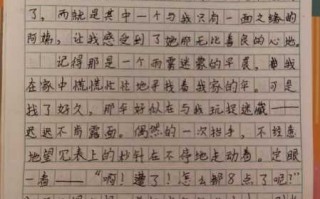 了。而就是其中一个与我只有一面之缘的
阿姨，让我感受到了她那无比善良的心地。
记得那是一个雨雾迷蒙的早晨，我
在家中慌慌忙忙地寻找着我家的伞。可是
找了好久，那伞好似在与我玩捉迷藏——
迟迟不肯露面。偶然的一次抬手，不经意
地望见表上的秒针在不停地走动着。定眼
一看——“啊！遭了！怎么都8点了呢？”